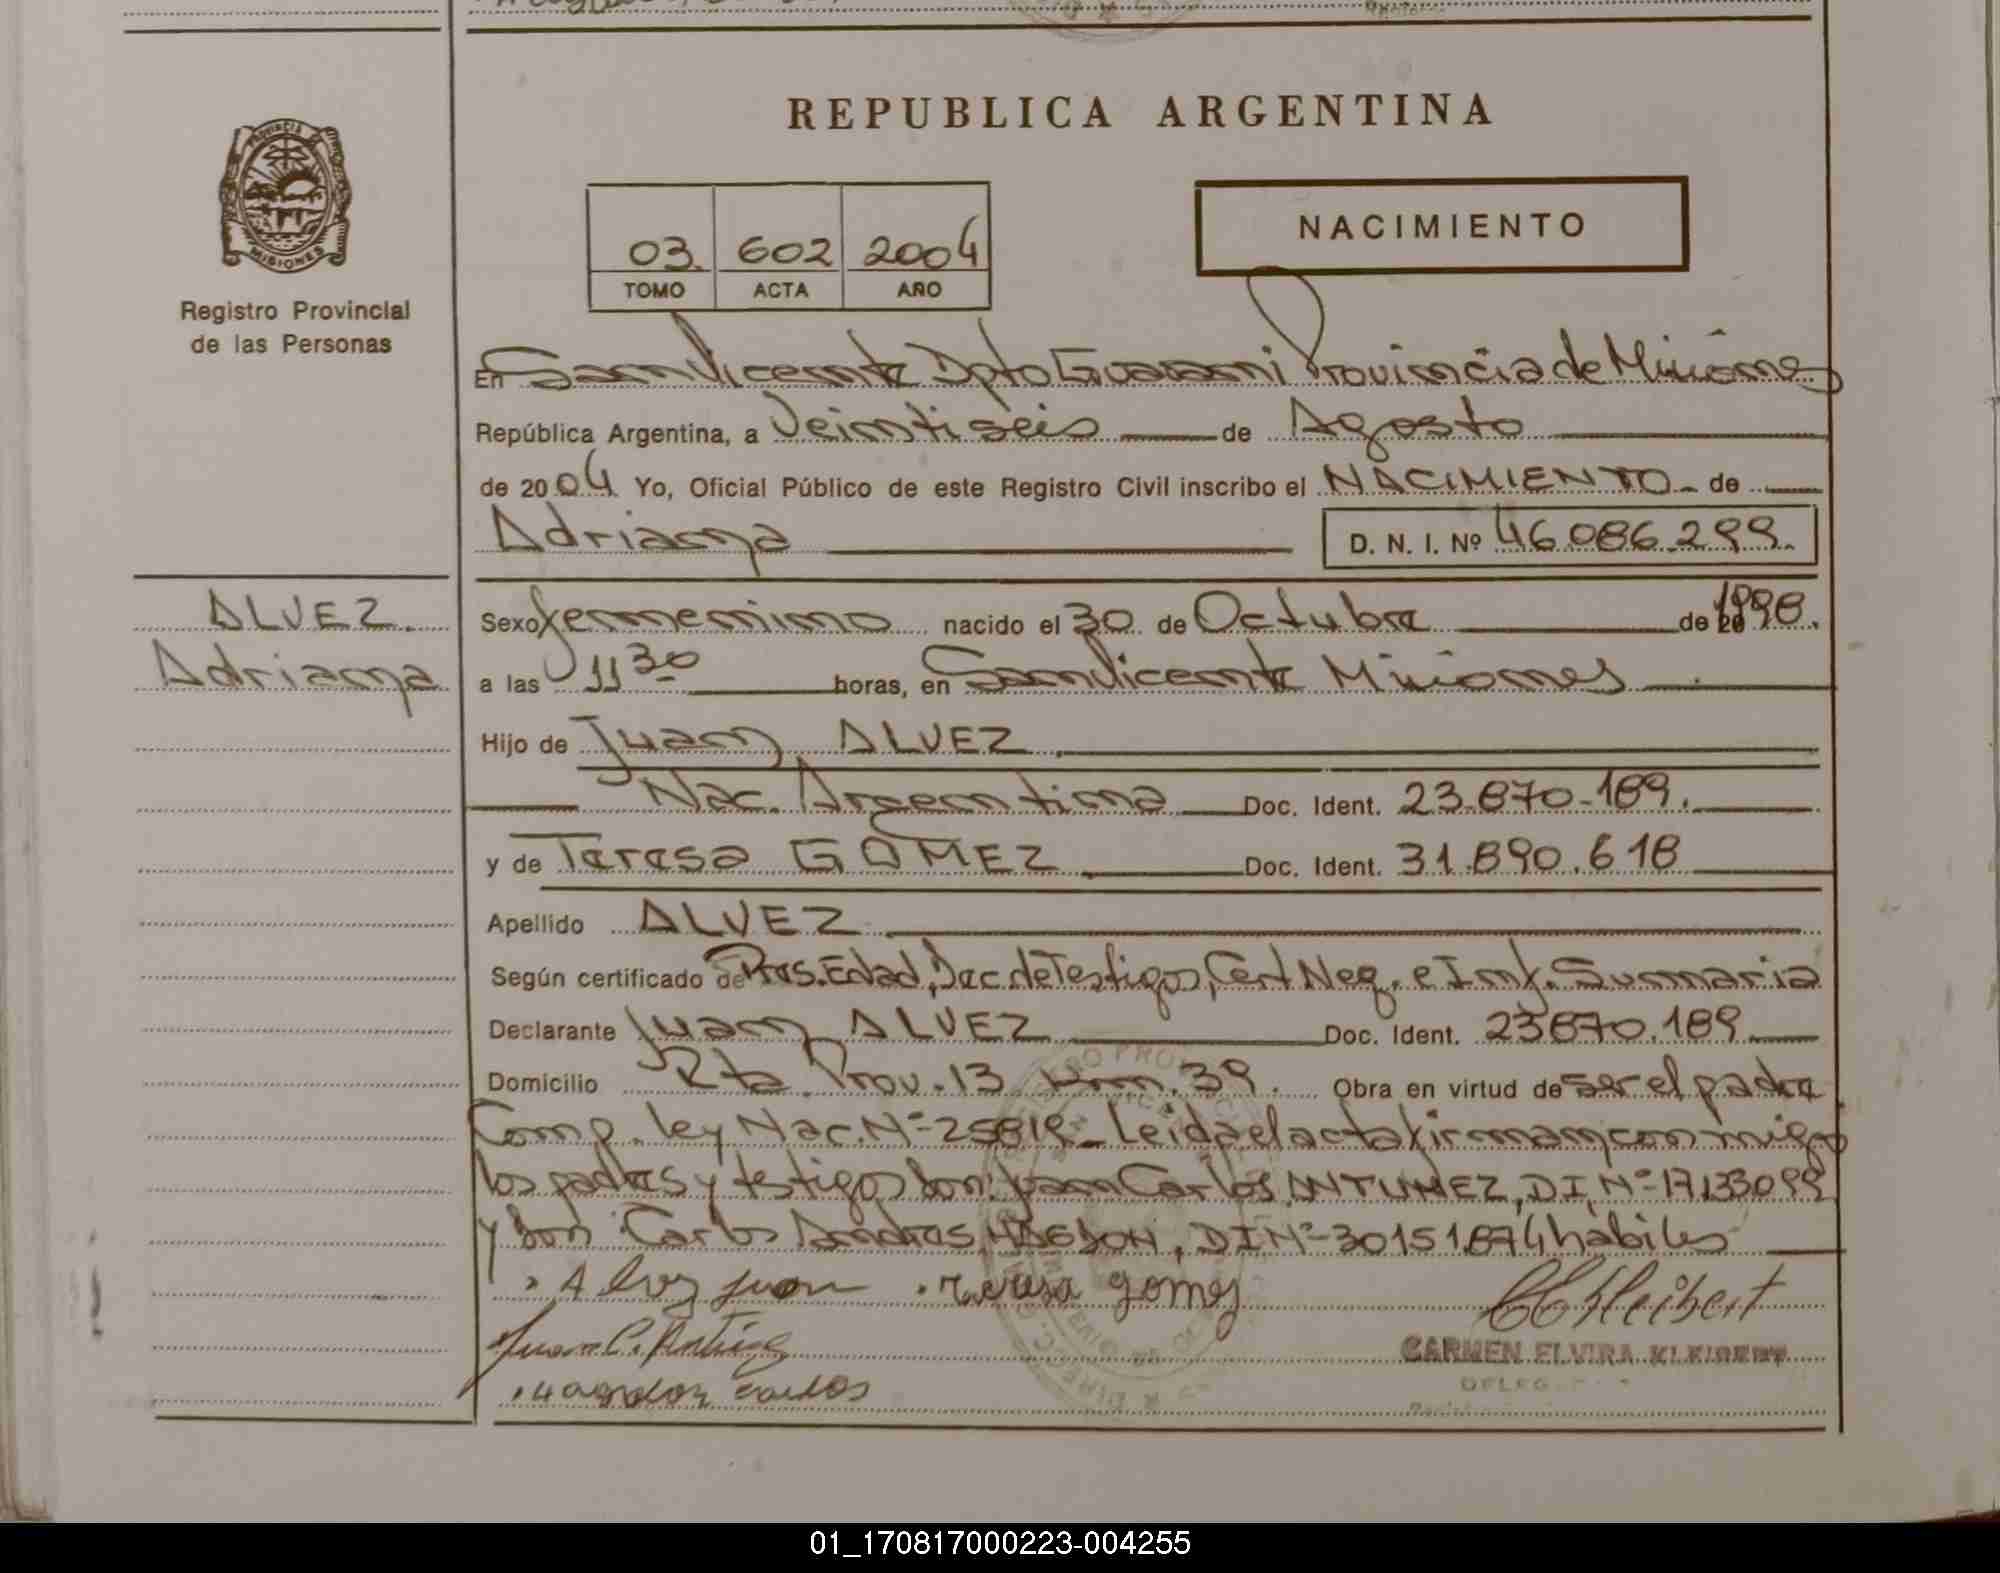 REPUBLICA ARGENTINA
PROVINCIA
MISIONES
Registro Provincial
de las Personas
03. 602 2004
TOMO ACTA AÑO
NACIMIENTO
En San Vicente Dpto Guarani Provincia de Misiones
República Argentina, a Veintiseis de Agosto
de 2004 Yo, Oficial Público de este Registro Civil inscribo el NACIMIENTO de
Adriana D. N. I. Nº 46.086.299.
ALVEZ.
Adriana
Sexo femenino nacido el 30 de Octubre de 1998.
a las 11 30 horas, en San Vicente Misiones
Hijo de Juan ALVEZ
Nac. Argentina Doc. Ident. 23.870.189.
y de Teresa GOMEZ Doc. Ident. 31.890.618
Apellido ALVEZ
Según certificado de Pres. Edad, Dec. de Testigos, Cert Neg. e Inf. Sumaria
Declarante Juan ALVEZ Doc. Ident. 23870.189
Domicilio Rta Prov. 13 km. 39. Obra en virtud de ser el padre
Comp. ley Nac. Nº 25819 Leida el acta firman conmigo
los padres y testigos son: Juan Carlos ANTUNEZ, DI, Nº 17.133.099
y Don Carlos Andres, DI Nº 30151.874 hábiles
Alvez Juan Teresa gomez
Juan C.
Carlos
CKleibert
CARMEN ELVIRA KLEIBERT
01_170817000223-004255